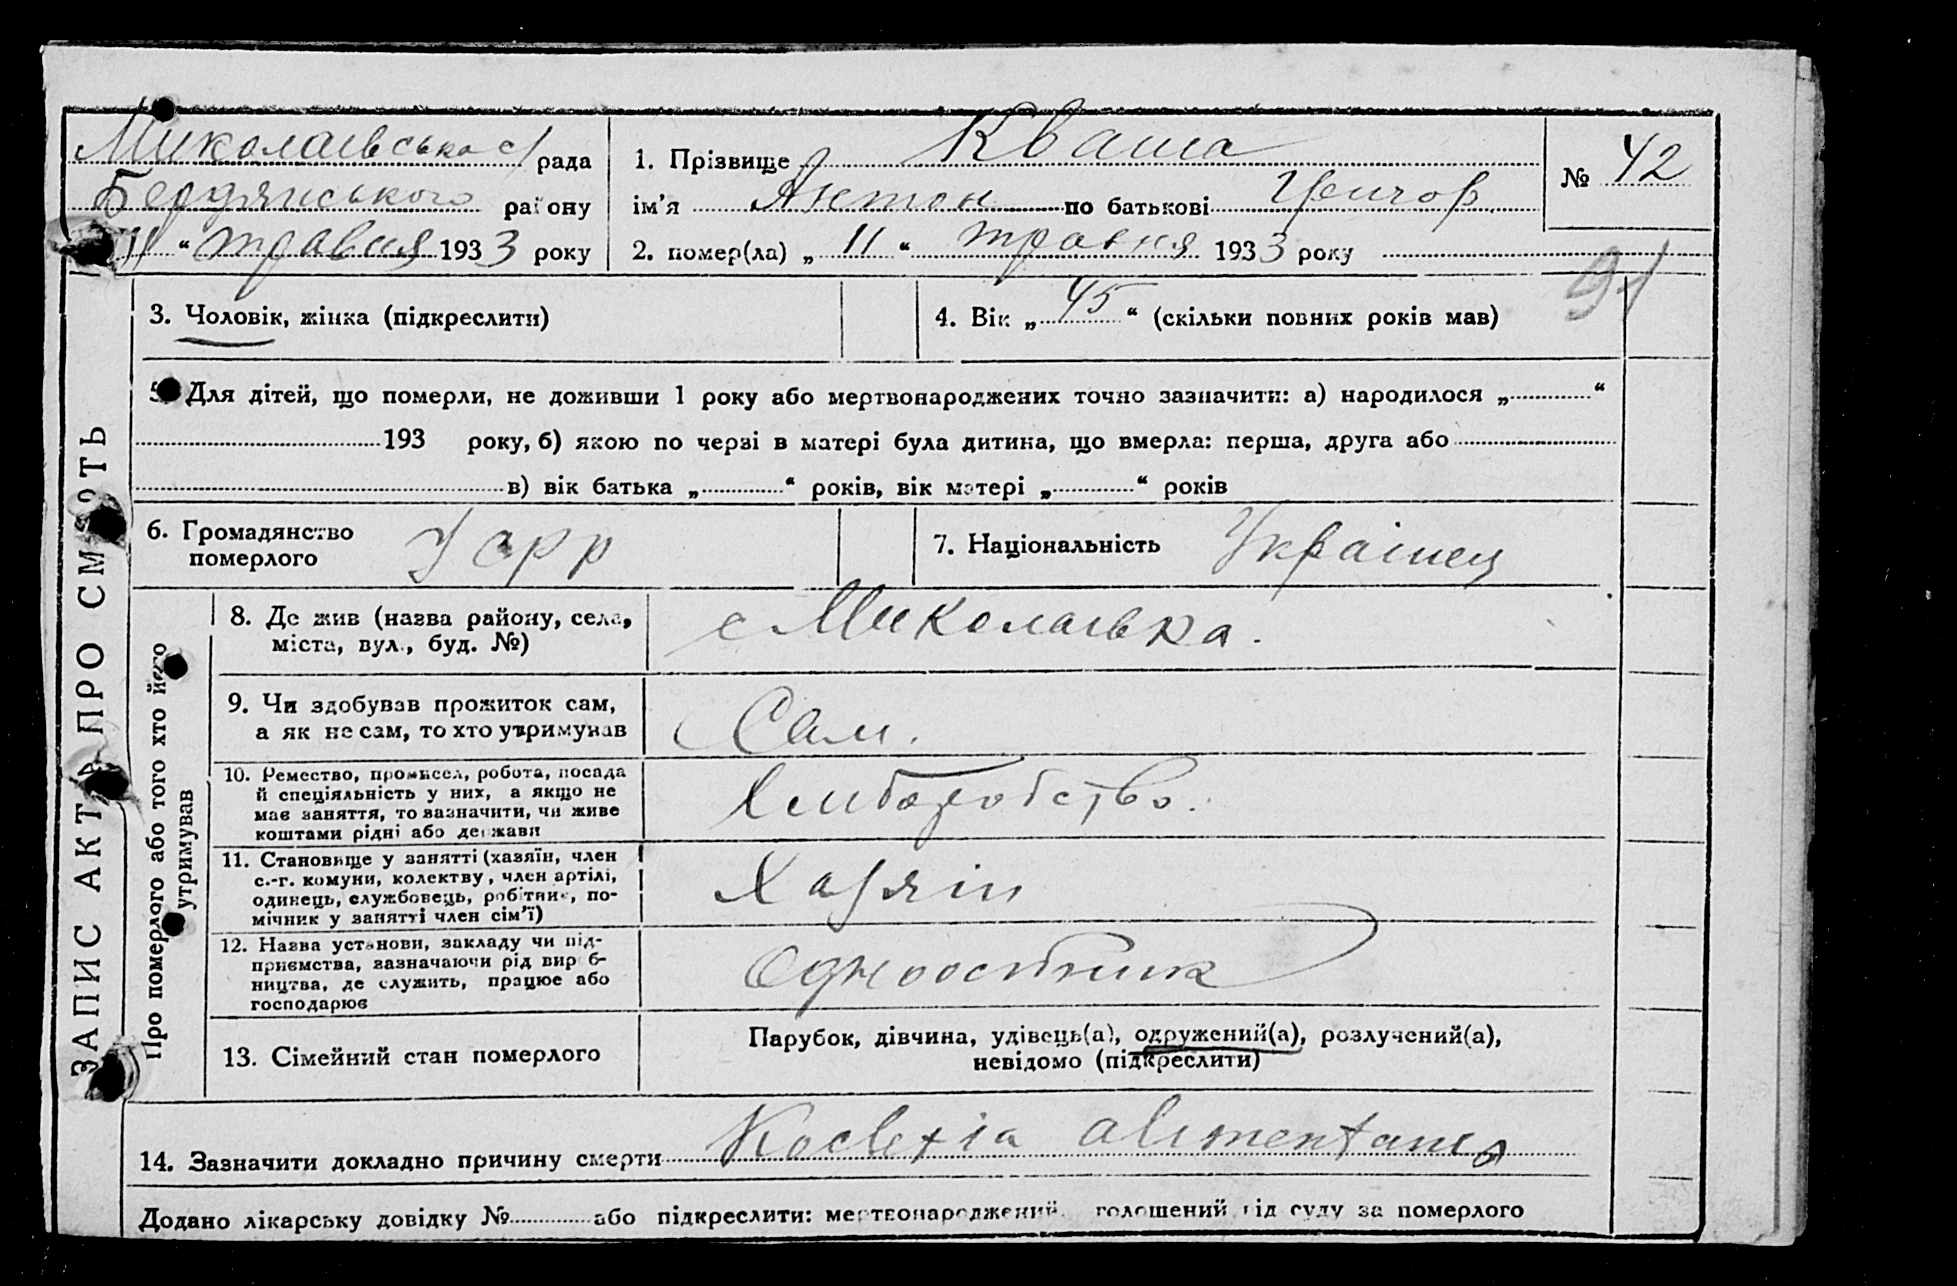 Миколаївська с/рада
Бердянського району
"11" травня 1933 року
1. Прізвище Кваша
ім'я Антон по батькові Григор.
2. помер(ла) „11“ травня 1933 року
№ 42
91
3. Чоловік, жінка (підкреслити)
4. Вік „45“ (скільки повних років мав)
5. Для дітей, що померли, не доживши 1 року або мертвонароджених точно зазначити: а) народилося „ “
193 року, б) якою по черзі в матері була дитина, що вмерла: перша, друга або
в) вік батька „ “ років, вік матері „ “ років
6. Громадянство
померлого
Усрр
7. Національність Українец
ЗАПИС АКТ ПРО СМЕРТЬ
Про померлого або того хто його
утримував
8. Де жив (назва району, села,
міста, вул., буд. №)
с Миколаївка.
9. Чи здобував прожиток сам,
а як не сам, то хто утримував
Сам.
10. Ремество, промисел, робота, посада
й спеціяльність у них, а якщо не
має заняття, то зазначити, чи живе
коштами рідні або держави
Хлиборобство.
11. Становище у занятті (хазяїн, член
с.-г. комуни, колектву, член артілі,
одинець, службовець, робітник, по-
мічник у занятті член сім'ї)
Хазяін
12. Назва установи, закладу чи під-
приємства, зазначаючи рід виробб-
ництва, де служить, працює або
господарює
Одноосібник
13. Сімейний стан померлого
Парубок, дівчина, удівець(а), одружений(а), розлучений(а),
невідомо (підкреслити)
14. Зазначити докладно причину смерти Kachexia alimentaris
Додано лікарську довідку № або підкреслити: мертвонароджений, голошений від суду за померлого